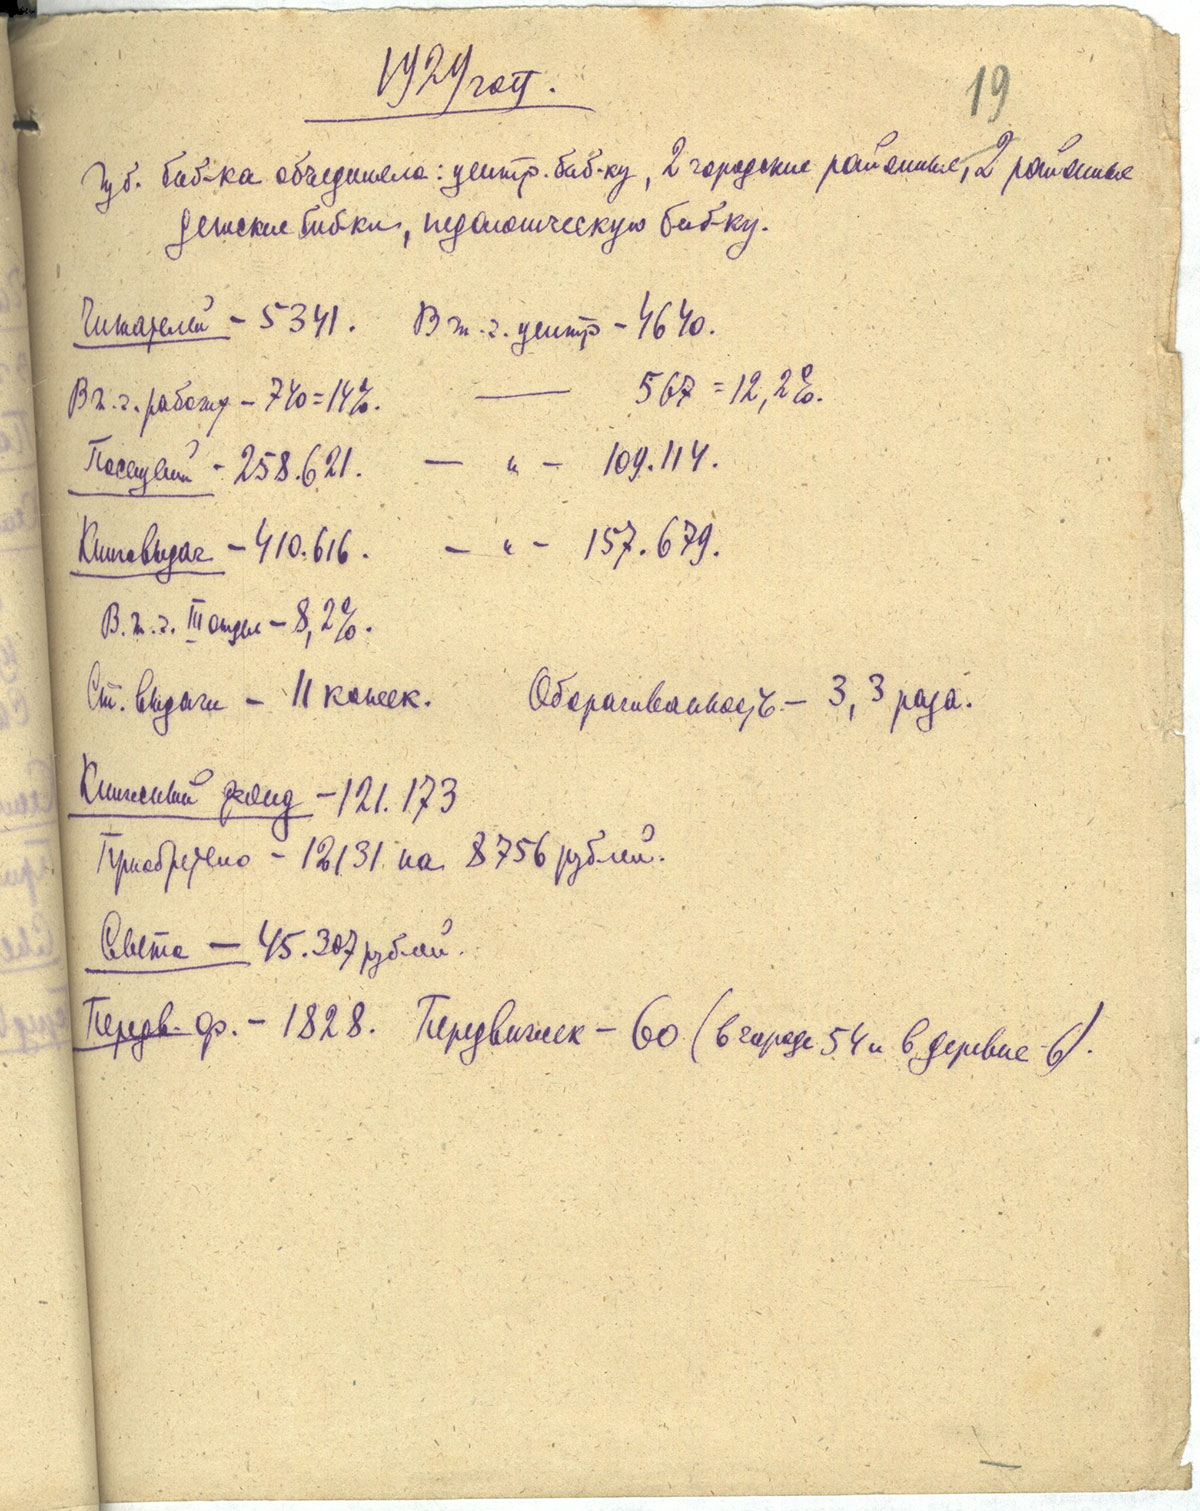 1929 год.
19
Губ. биб-ка объединяла: центр. биб-ку, 2 городские районные, 2 районные
детские биб-ки, педологическую биб-ку.
Читателей – 5341. В т.ч. центр – 4640.
В т.ч. рабочих – 740 = 14%. — 567 = 12,2%.
Посещений – 258.621. — " — 109.114.
Книговыдач – 410.616. — " — 157.679.
В.т.ч. III отдел – 8,2%.
Ст. выдачи – 11 копеек. Обораниваемость – 3,3 раза.
Книжный фонд – 121.173
Приобретено – 12131 на 8756 рублей.
Смета – 45.307 рублей.
Передв. ф. – 1828. Передвижек – 60 (в городе 54 и в деревне – 6).